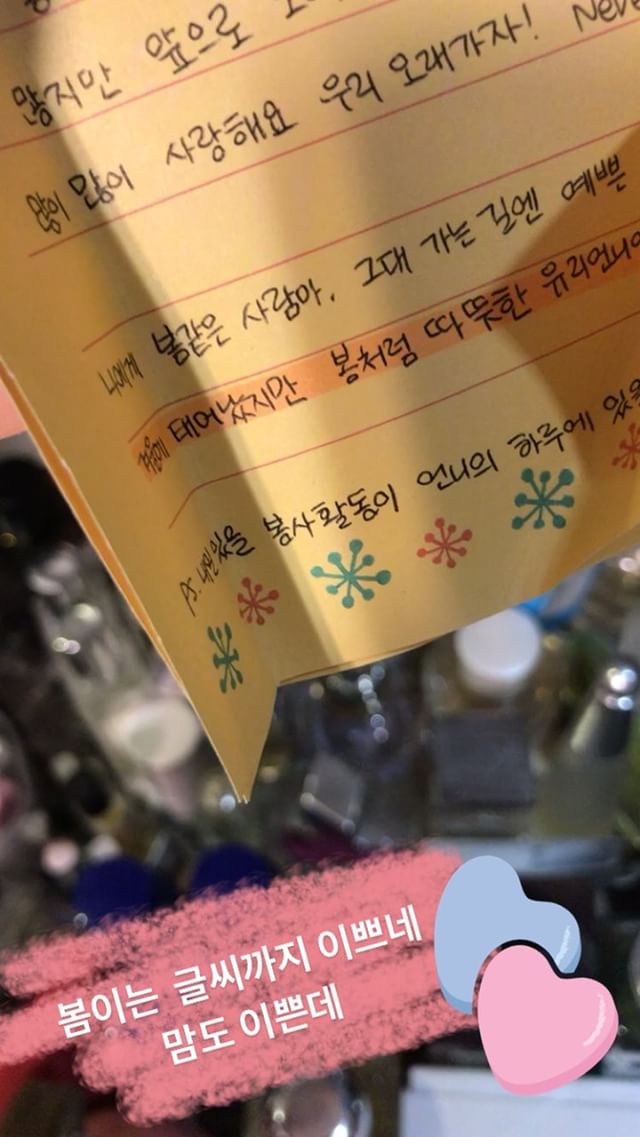 많지만 앞으로
많이 많이 사랑해요 우리 오래가자!
나에게 봄같은 사람아. 그대 가는길엔 예쁜
겨울에 태어났지만 봄처럼 따뜻한 유리언니의
PS. 내일있을 봉사활동이 언니의 하루에 있을
봄이는 글씨까지 이쁘네
맘도 이쁜데